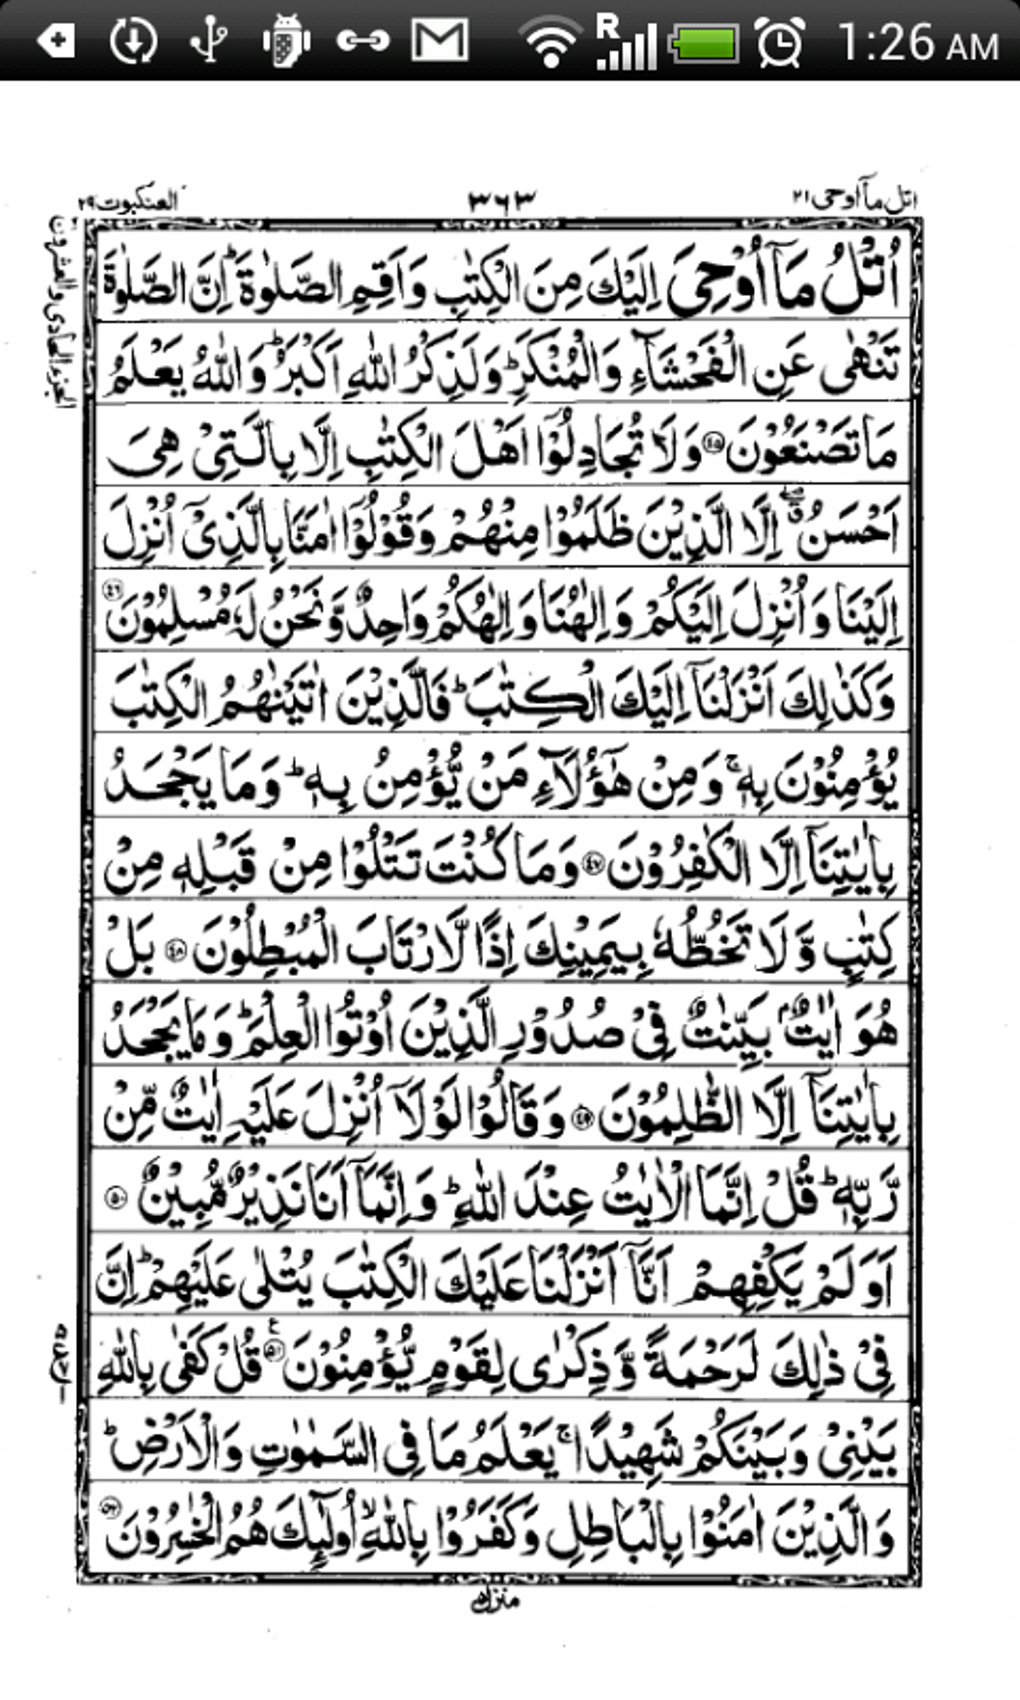 1:26 AM
اتل مآ اوحی ٢١
٣٦٣
العنكبوت ٢٩
الجزء الحادی والعشرون
اُتْلُ مَاۤ اُوْحِیَ اِلَیْكَ مِنَ الْكِتٰبِ وَ اَقِمِ الصَّلٰوةَ ؕ اِنَّ الصَّلٰوةَ
تَنْهٰی عَنِ الْفَحْشَآءِ وَالْمُنْكَرِ ؕ وَ لَذِكْرُ اللّٰهِ اَكْبَرُ ؕ وَاللّٰهُ یَعْلَمُ
مَا تَصْنَعُوْنَ ﴿٤٥﴾ وَ لَا تُجَادِلُوْۤا اَهْلَ الْكِتٰبِ اِلَّا بِالَّتِیْ هِیَ
اَحْسَنُ ۖۗ اِلَّا الَّذِیْنَ ظَلَمُوْا مِنْهُمْ وَ قُوْلُوْۤا اٰمَنَّا بِالَّذِیْۤ اُنْزِلَ
اِلَیْنَا وَ اُنْزِلَ اِلَیْكُمْ وَ اِلٰهُنَا وَ اِلٰهُكُمْ وَاحِدٌ وَّ نَحْنُ لَهٗ مُسْلِمُوْنَ ﴿٤٦﴾
وَكَذٰلِكَ اَنْزَلْنَاۤ اِلَیْكَ الْكِتٰبَ ؕ فَالَّذِیْنَ اٰتَیْنٰهُمُ الْكِتٰبَ
یُؤْمِنُوْنَ بِهٖ ۚ وَ مِنْ هٰۤؤُلَآءِ مَنْ یُّؤْمِنُ بِهٖ ؕ وَ مَا یَجْحَدُ
بِاٰیٰتِنَاۤ اِلَّا الْكٰفِرُوْنَ ﴿٤٧﴾ وَ مَا كُنْتَ تَتْلُوْا مِنْ قَبْلِهٖ مِنْ
كِتٰبٍ وَّ لَا تَخُطُّهٗ بِیَمِیْنِكَ اِذًا لَّارْتَابَ الْمُبْطِلُوْنَ ﴿٤٨﴾ بَلْ
هُوَ اٰیٰتٌۢ بَیِّنٰتٌ فِیْ صُدُوْرِ الَّذِیْنَ اُوْتُوا الْعِلْمَ ؕ وَ مَا یَجْحَدُ
بِاٰیٰتِنَاۤ اِلَّا الظّٰلِمُوْنَ ﴿٤٩﴾ وَ قَالُوْا لَوْ لَاۤ اُنْزِلَ عَلَیْهِ اٰیٰتٌ مِّنْ
رَّبِّهٖ ؕ قُلْ اِنَّمَا الْاٰیٰتُ عِنْدَ اللّٰهِ ؕ وَ اِنَّمَاۤ اَنَا نَذِیْرٌ مُّبِیْنٌ ﴿٥٠﴾
اَوَ لَمْ یَكْفِهِمْ اَنَّاۤ اَنْزَلْنَا عَلَیْكَ الْكِتٰبَ یُتْلٰی عَلَیْهِمْ ؕ اِنَّ
فِیْ ذٰلِكَ لَرَحْمَةً وَّ ذِكْرٰی لِقَوْمٍ یُّؤْمِنُوْنَ ﴿٥١﴾ قُلْ كَفٰی بِاللّٰهِ
بَیْنِیْ وَ بَیْنَكُمْ شَهِیْدًا ۚ یَعْلَمُ مَا فِی السَّمٰوٰتِ وَ الْاَرْضِ ؕ
وَ الَّذِیْنَ اٰمَنُوْا بِالْبَاطِلِ وَ كَفَرُوْا بِاللّٰهِ ۙ اُولٰٓئِكَ هُمُ الْخٰسِرُوْنَ ﴿٥٢﴾
منزل ٥